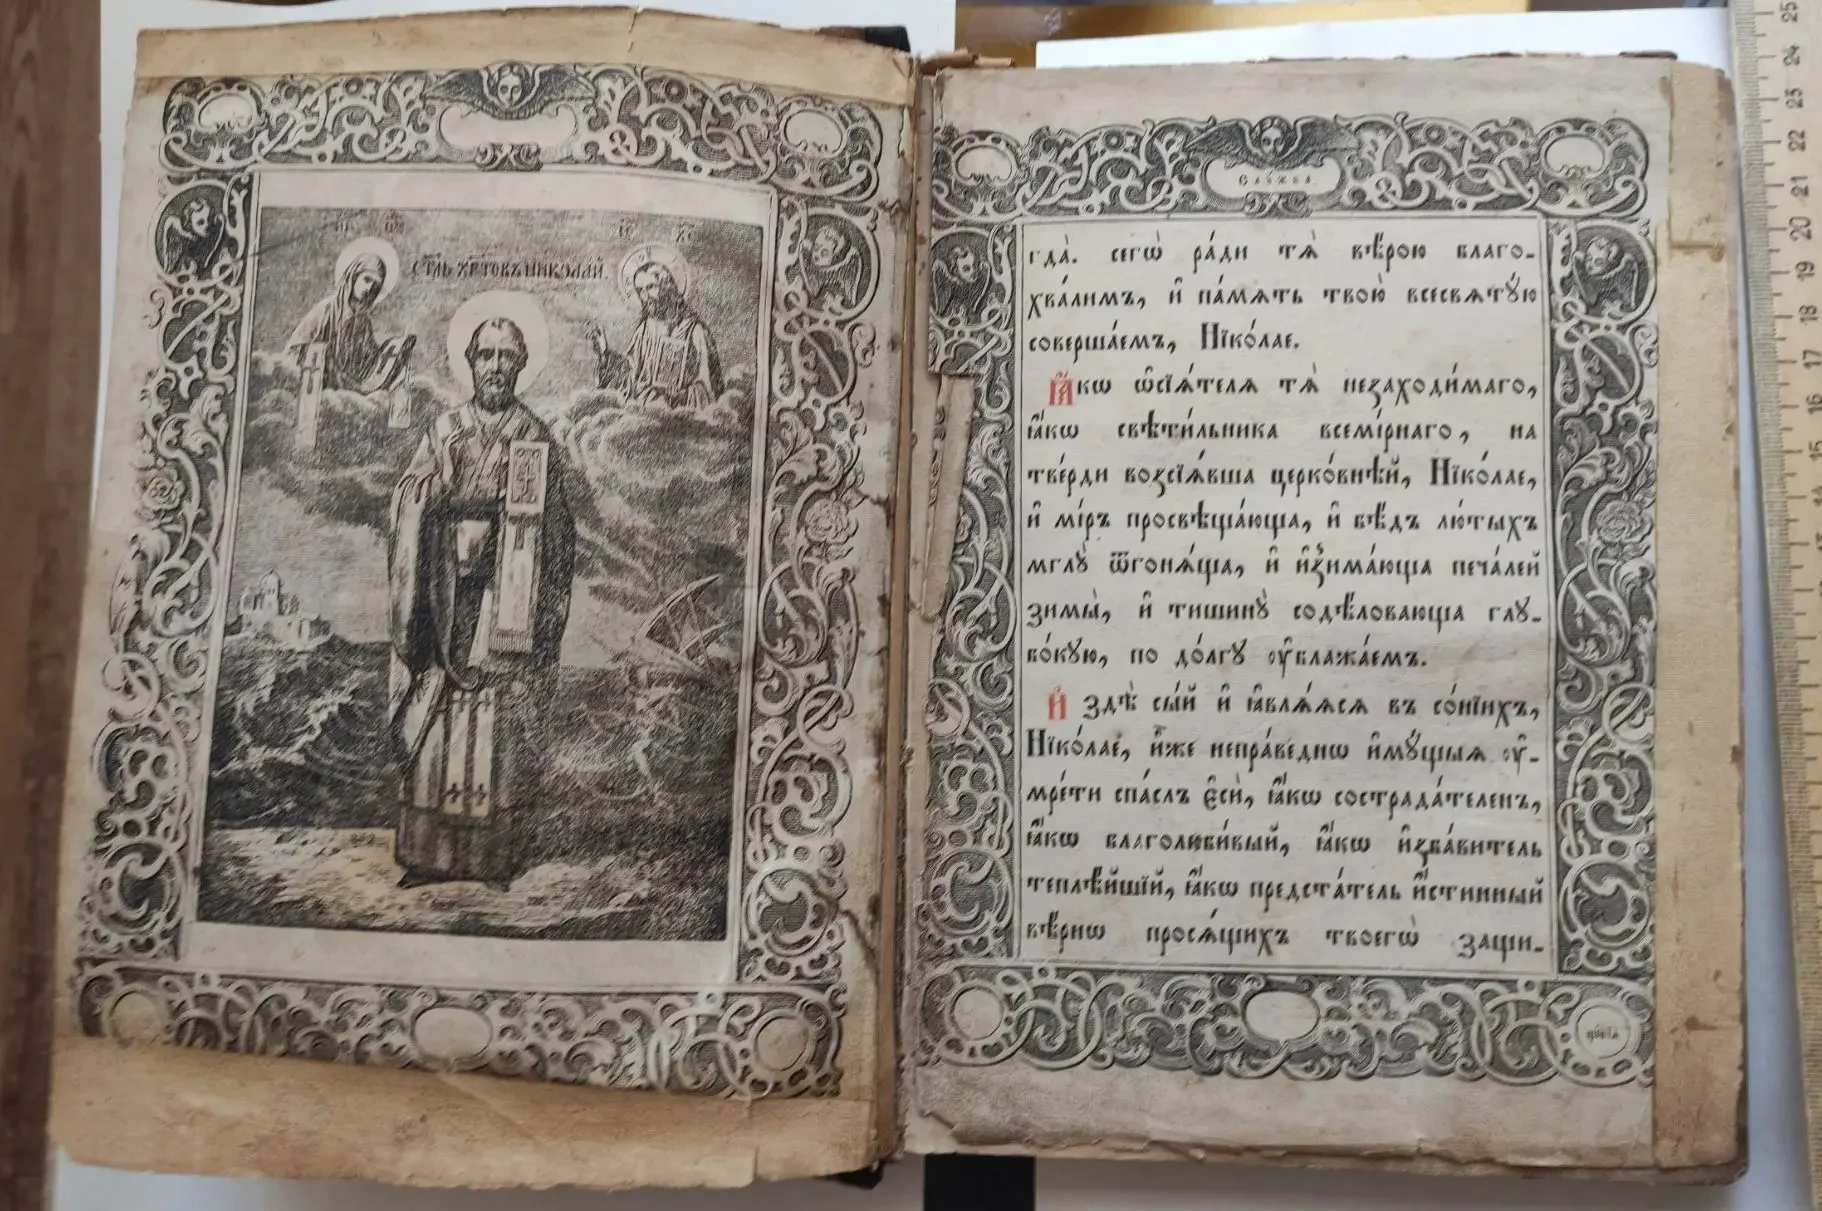 ст҃ль хр҇то́въ николай.
Слꙋжба
гда̀. сегѡ̀ ра́ди тѧ̀ вѣ́рою благо-
хва́лимъ, и҆ па́мѧть твою̀ всесвѧтꙋ́ю
соверша́емъ, Нїко́лае.
Ꙗ҆́кѡ ѡ҆сїѧ́телѧ тѧ̀ незаходи́маго,
ꙗ҆́кѡ свѣти́льника всемі́рнаго, на
тве́рди возсїѧ́вша церко́внѣй, Нїко́лае,
и҆ мі́ръ просвѣща́юща, и҆ бѣ́дъ лю́тыхъ
мглꙋ̀ ѿгонѧ́юща, и҆ и҆зима́юща печа́лей
зимы̀, и҆ тишинꙋ̀ содѣ́ловающа глꙋ-
бо́кꙋю, по до́лгꙋ ᲂу҆блажа́емъ.
И҆ здѣ̀ сы́й и҆ ꙗ҆влѧ́ѧсѧ въ со́нїихъ,
Нїко́лае, и҆̀же непра́веднѡ и҆мꙋ́щыѧ ᲂу҆-
мре́ти спа́слъ є҆сѝ, ꙗ҆́кѡ сострада́теленъ,
ꙗ҆́кѡ благолюби́вый, ꙗ҆́кѡ и҆зба́витель
теплѣ́йшїй, ꙗ҆́кѡ предста́тель и҆́стинный
вѣ́рнѡ просѧ́щихъ твоегѡ̀ защи-